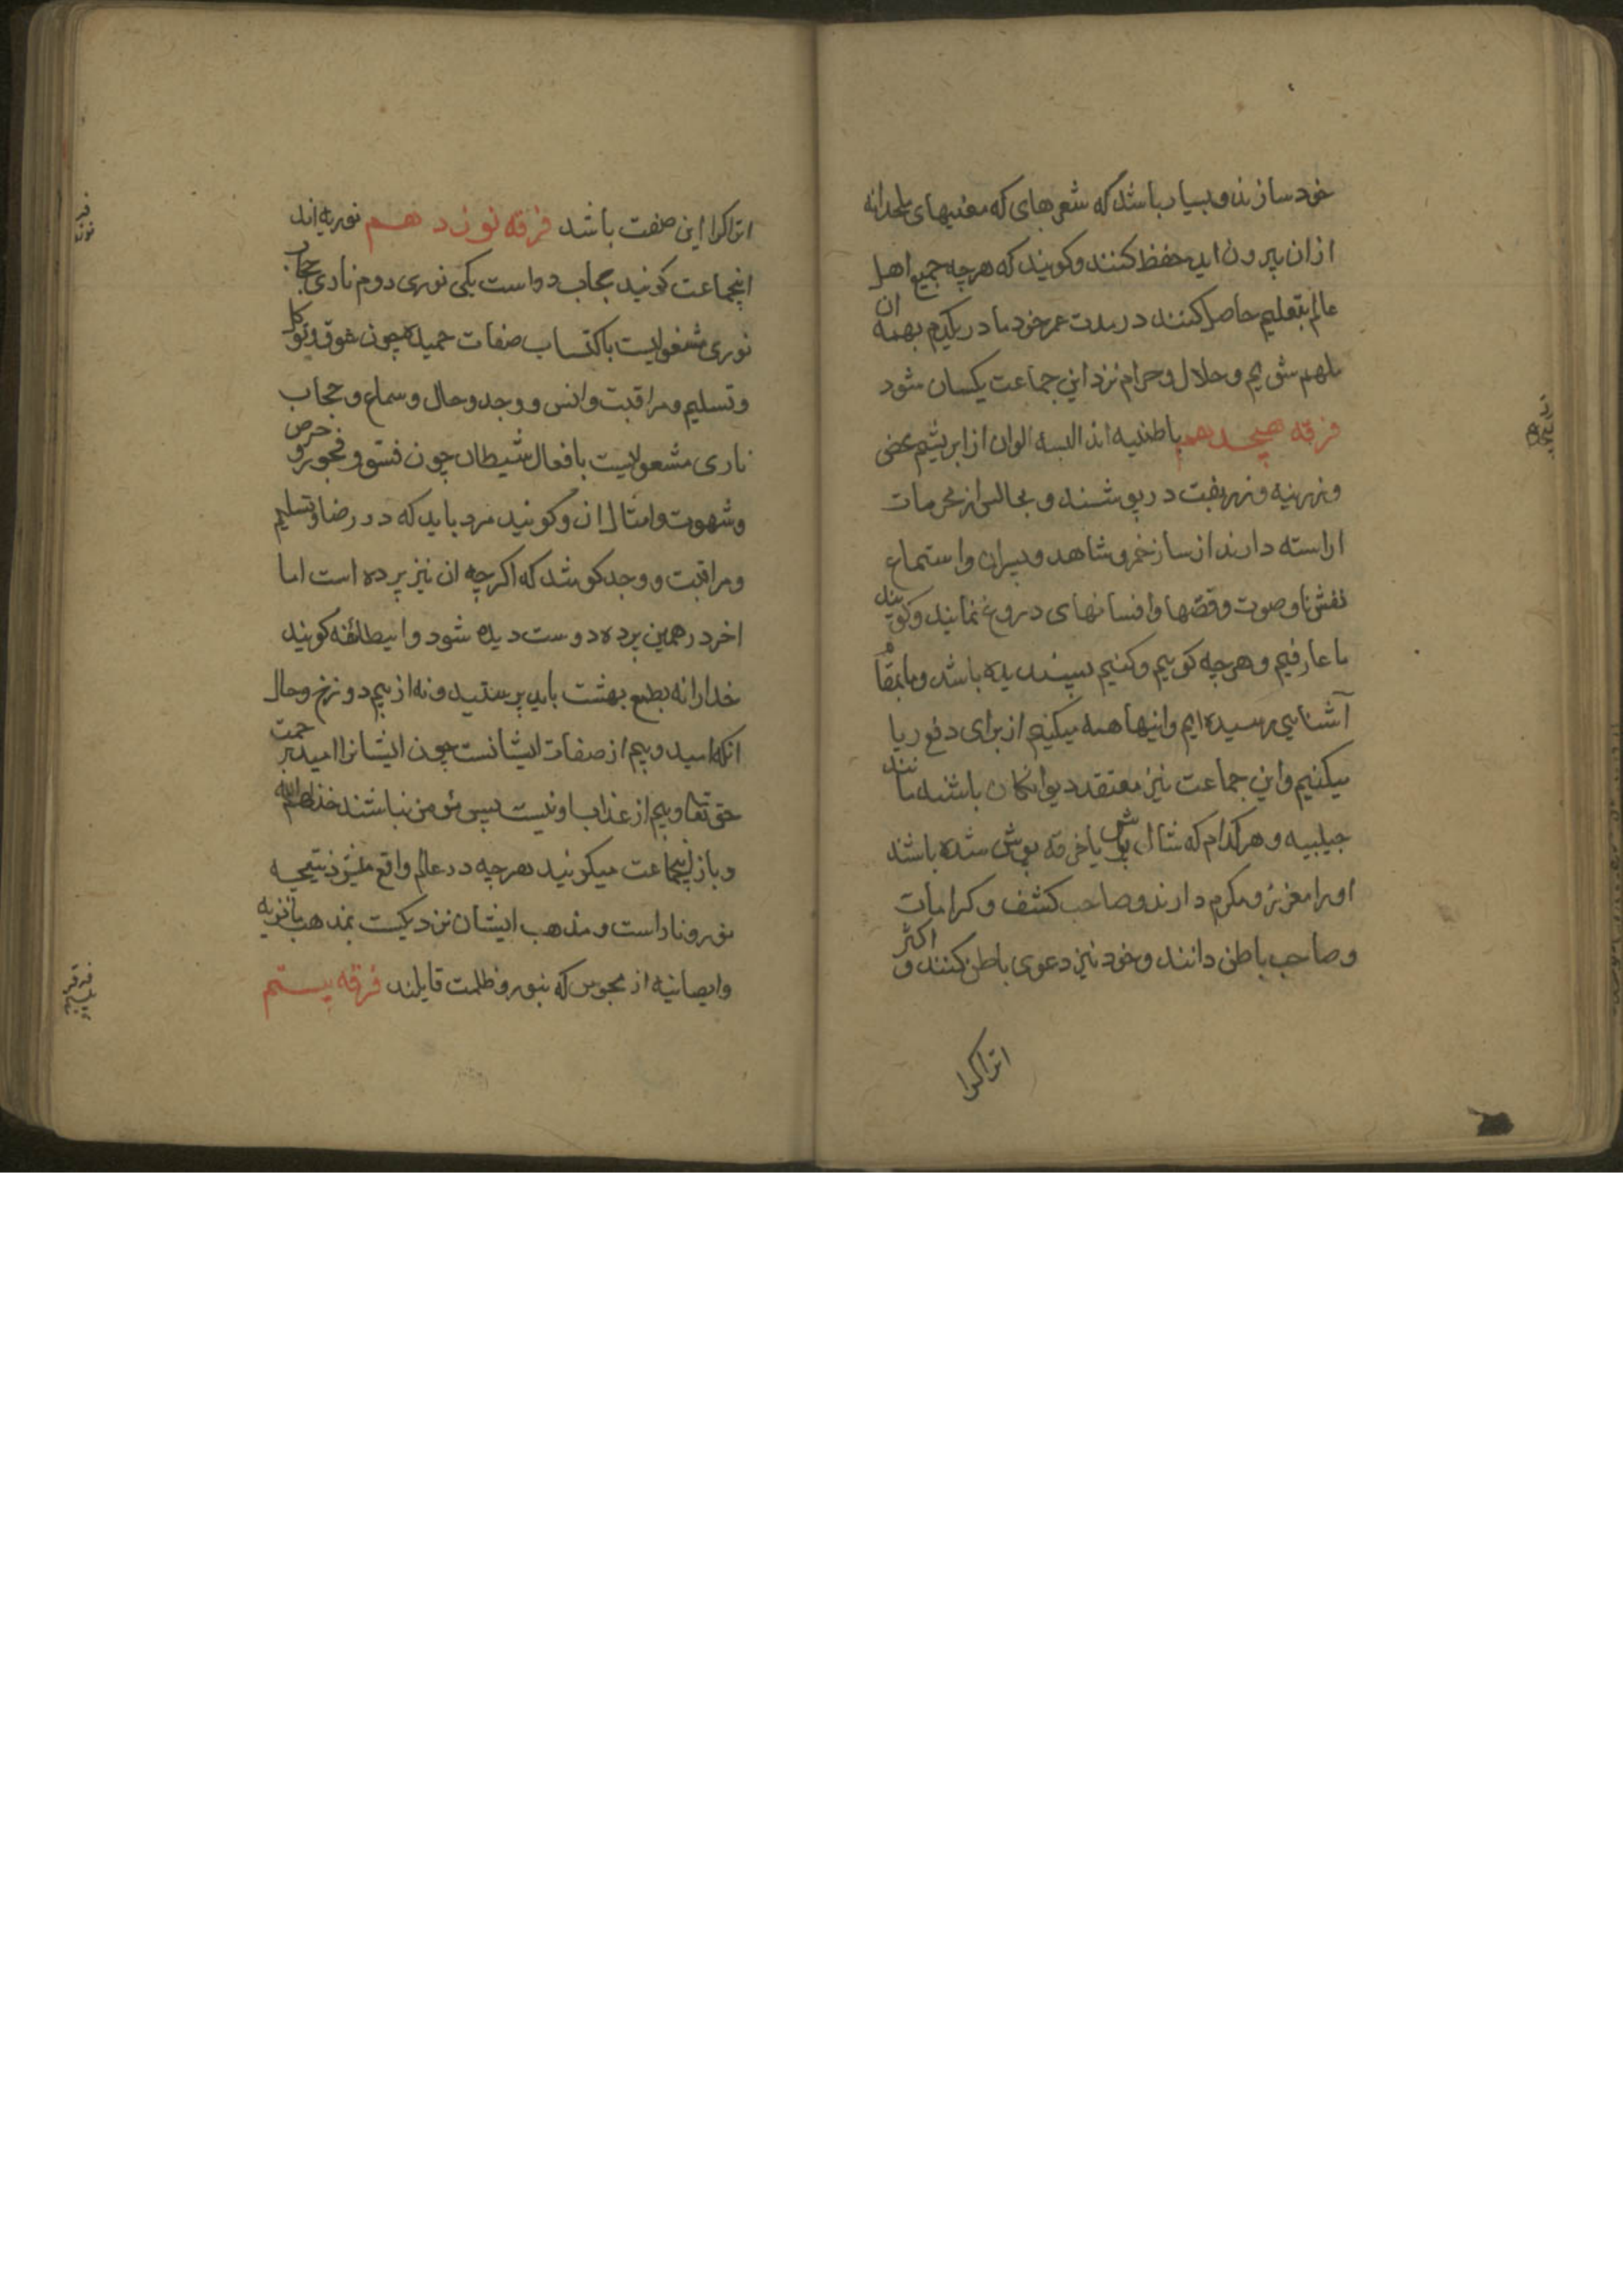 خود سازند و بسیار باشد که شعرهای که معنیهای ملحدانه
ازان بیرون اید حفظ کنند و کویند که هرچه جمیع اهل
عالم بتعلیم حاصل کنند در مدت عمر خود ما در یکدم بهمه ان
ملهم شویم و حلال و حرام نزد این جماعت یکسان شود
فرقه هیجدهم باطنیه اند البسه الوان از ابریشم محض
و زرینه و زربفت در پوشند و مجالس از محرمات
اراسته دارند از ساز خمر و شاهد و پسران و استماع
نقش نا و صوت و قصها و افسانهای دروغ نمایند و کویند
ما عارفیم و هرچه کوییم و کنیم پسندیده باشد و ما بمقام
آشنایی رسیده ایم و اینها همه میکنیم از برای دفع ریا
میکنیم و این جماعت نیز معتقد دیوانکان باشند مانند
جیلبیه و هر کدام که شال پوش یا خرقه پوش شده باشد
اورا معزز و مکرم دارند و صاحب کشف و کرامات
و صاحب باطن دانند و خود نیز دعوی باطن کنند و اکثر
اتراکرا
اتراکرا این صفت باشد فرقه نوزدهم نوریه اند
اینجماعت کویند حجاب دو است یکی نوری دوم ناری حجاب
نوری مشغولیست باکتساب صفات حمیده چون شوق و توکل
و تسلیم و مراقبت و انس و وجد و حال و سماع و حجاب
ناری مشغولیست بافعال شیطان چون فسق و فجور و حرص
و شهوت و امثال ان و کویند مرد باید که در رضا و تسلیم
و مراقبت و وجد کوشد که اکرچه ان نیز پرده است اما
اخر در همین پرده دوست دیده شود و اینطائفه کویند
خدارا نه بطمع بهشت باید پرستید و نه از بیم دوزخ و حال
انکه امید و بیم از صفات ایشانست چون ایشانرا امید برحمت
حق تعالی و بیم از عذاب او نیست پس مؤمن نباشند خذلهم الله
و باز اینجماعت میکویند هرچه در عالم واقع میشود نتیجه
نور و نار است و مذهب ایشان نزدیکست بمذهب مانویه
و ایصانیه از مجوس که بنور و ظلمت قایلند فرقه بیستم